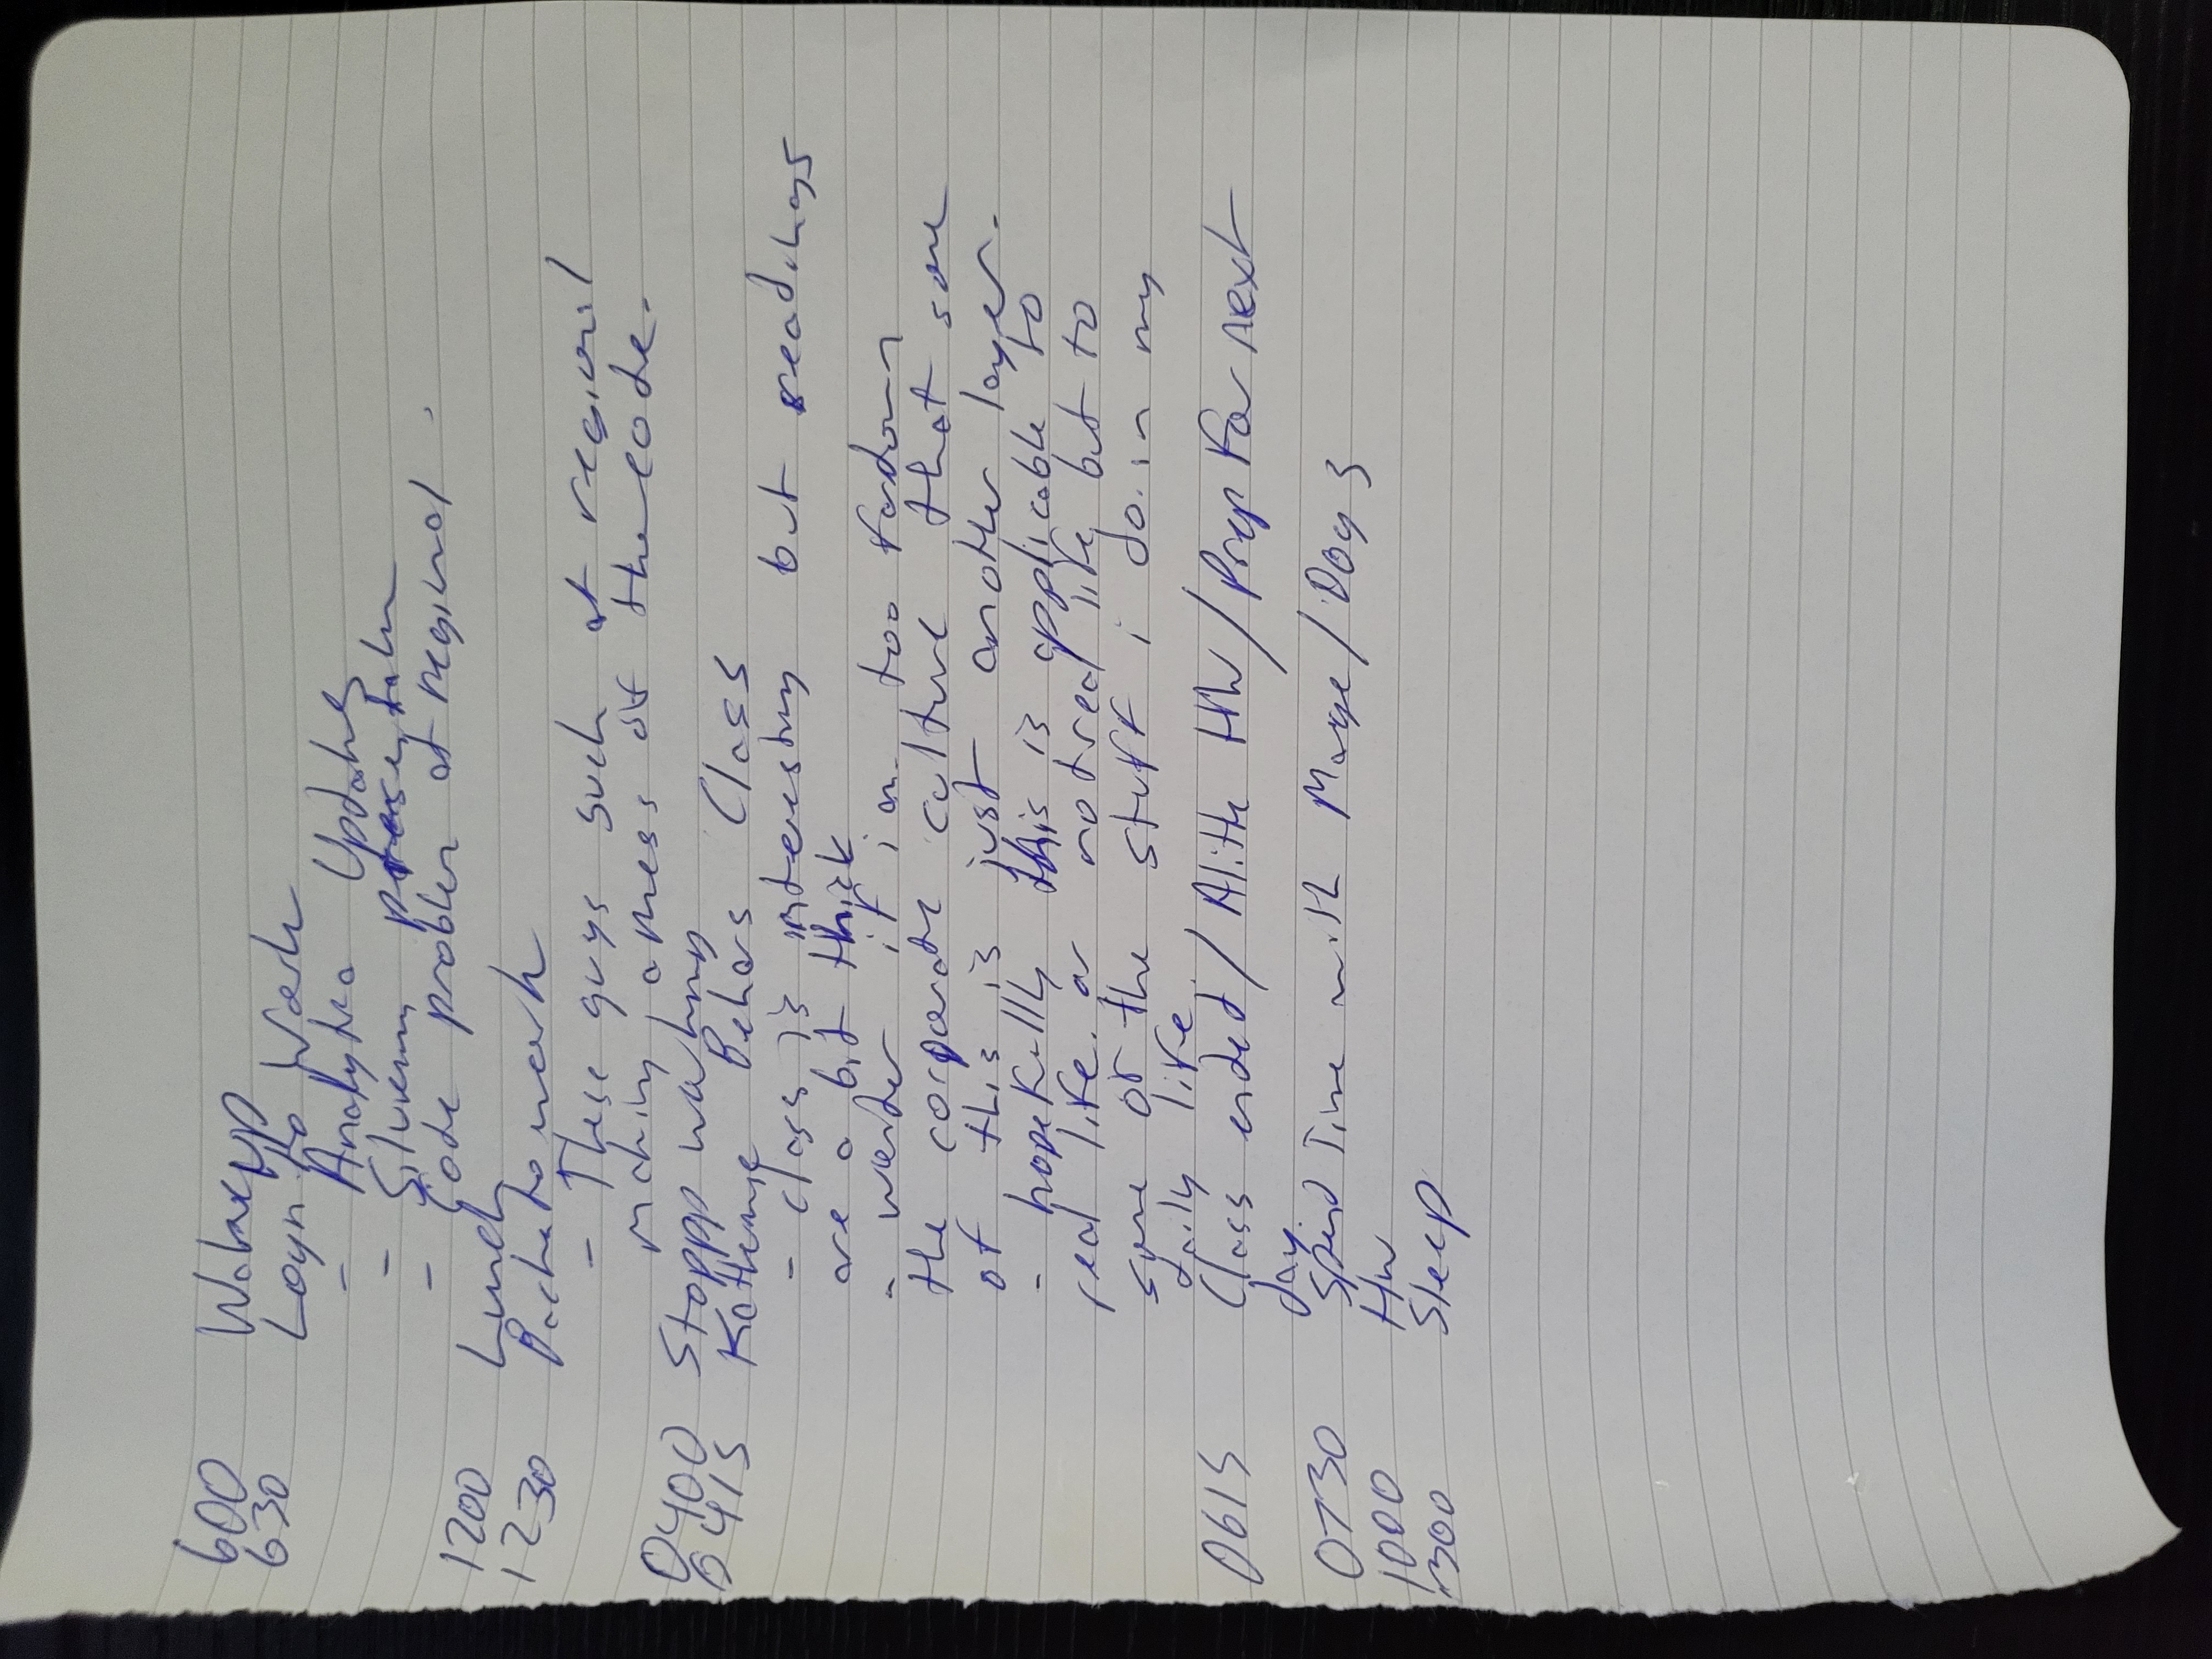 600 Wakeup
630 Login to Work
- Analytica Updates
- presentation
- Code problem at regional
1200 Lunch
1230 Back to work
- These guys suck at regional
making a mess of the code.
0400 Stoppp working
0415 Katherine Behars Class
- class is interesting but readings
are a bit thick
- wonder if i am too far down
the corporate culture that some
of this is just another layer.
- hopefully this is applicable to
real life. or not real life but to
some of the stuff i do in my
daily life.
0615 Class ended / A little HW / Prep for next
day.
0730 Spend Time with / Dogs
1000 HW
300 Sleep